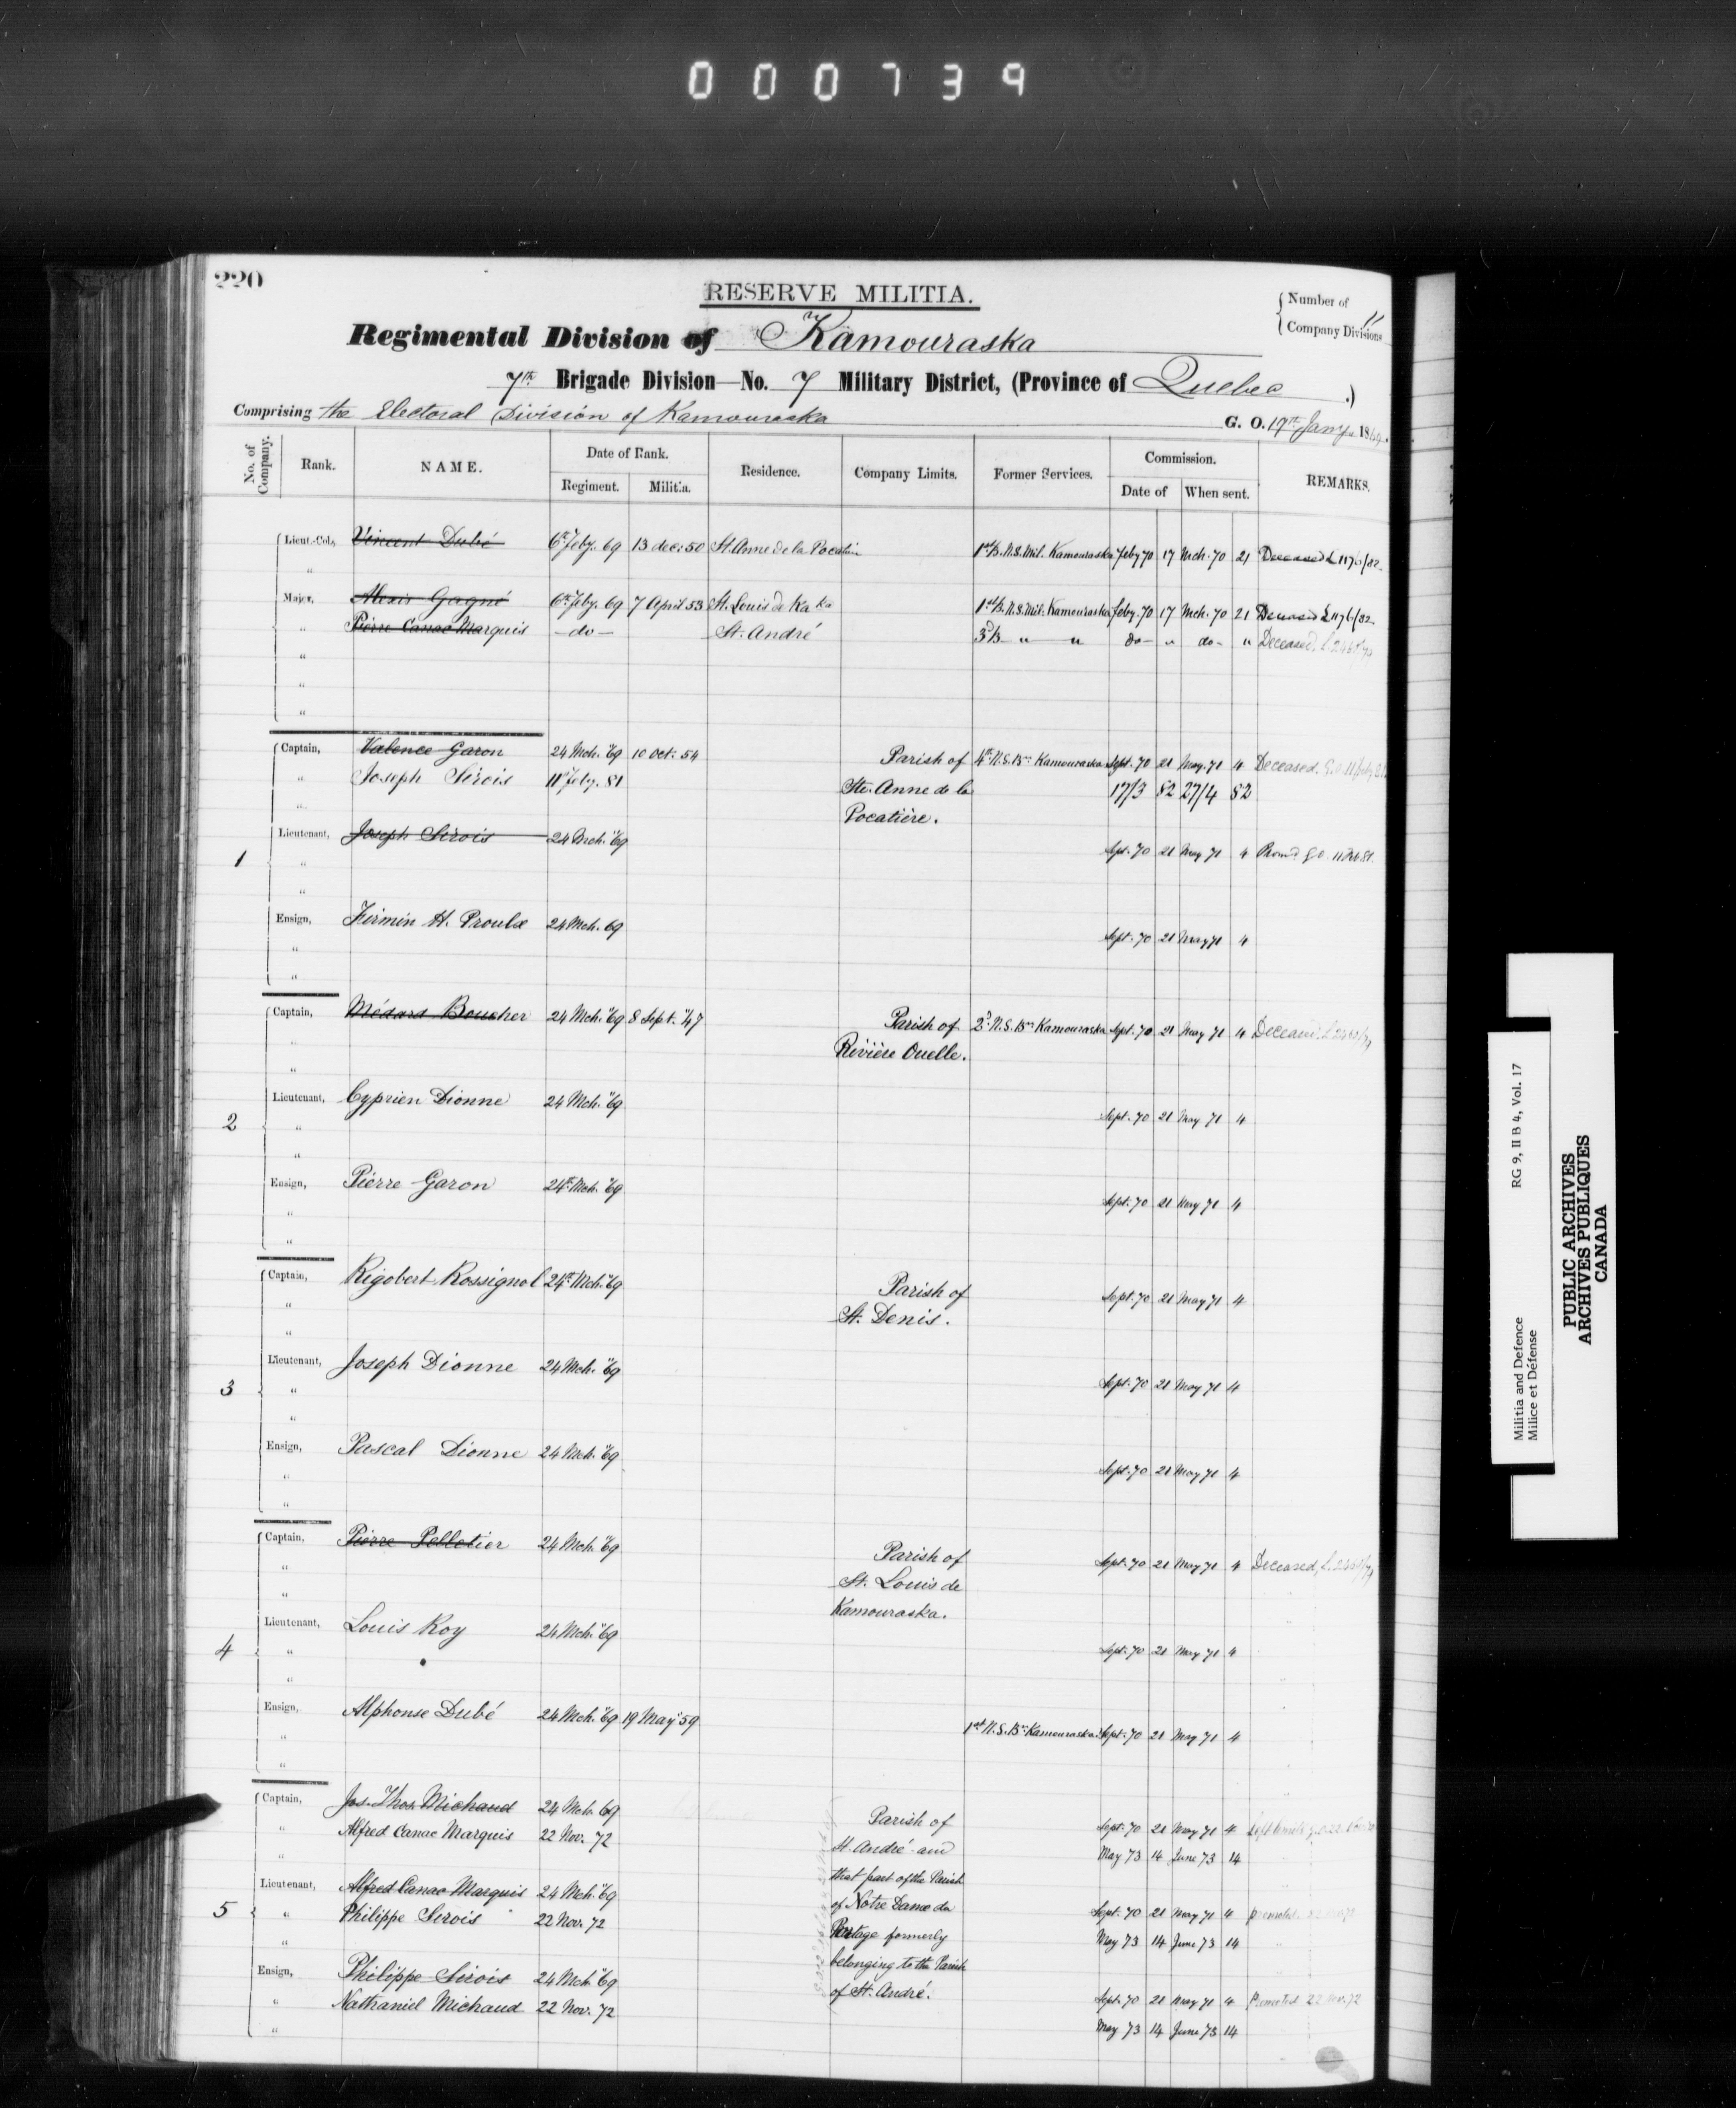 000739
220
RESERVE MILITIA.
Number of Company Divisions 11
Regimental Division of Kamouraska
7th Brigade Division—No. 7 Military District, (Province of Quebec.)
Comprising the Electoral Division of Kamouraska G. O. 19th Jany. 1869.
No. of Company. Rank. NAME. Date of Rank. Residence. Company Limits. Former Services. Commission. REMARKS.
Regiment. Militia. Date of When sent.
Lieut.-Col., Vincent Dubé 6th Feby. 69 13 dec: 50 St. Anne de la Pocatière 1st B. N.S. Mil. Kamouraska Feby 70 17 Mch. 70 21 Deceased L 1176/82
"
Major, Alexis Gagné 6th Feby. 69 7 April 53 St. Louis de Ka ka 1st B. N.S. Mil. Kamouraska Feby. 70 17 Mch. 70 21 Deceased L 1176/82
" Pierre Canac Marquis —do— St. André 3d B — " — " do — " do — " Deceased,
"
"
"
Captain, Valence Garon 24 Mch. "69 10 Oct: 54 Parish of 4th N.S. Bn Kamouraska Sept. 70 21 May. 71 4 Deceased. G.O. 11 feby 81
" Joseph Sirois 11th feby. 81 Ste. Anne de la 17/3 82 27/4 82
" Pocatière.
Lieutenant, Joseph Sirois 24 Mch. "69
1 " Sept. 70 21 May 71 4 Prom'd G O 11 Feb 81.
"
Ensign, Firmin H. Proulx 24 Mch. 69
" Sept. 70 21 May 71 4
"
Captain, Médard Boucher 24 Mch. "69 8 Sept. "47 Parish of 2d N.S. Bn Kamouraska Sept. 70 21 May 71 4 Deceased.
" Rivière Ouelle.
"
Lieutenant, Cyprien Dionne 24 Mch. "69
2 " Sept. 70 21 May 71 4
"
Ensign, Pierre Garon 24th Mch. "69
" Sept. 70 21 May 71 4
"
Captain, Rigobert Rossignol 24th Mch. "69 Parish of
" St. Denis. Sept. 70 21 May 71 4
"
Lieutenant, Joseph Dionne 24 Mch. "69
3 " Sept. 70 21 May 71 4
"
Ensign, Pascal Dionne 24 Mch. "69
" Sept. 70 21 May 71 4
"
Captain, Pierre Pelletier 24 Mch. "69 Parish of Sept. 70 21 May 71 4 Deceased,
" St. Louis de
" Kamouraska.
Lieutenant, Louis Roy 24 Mch. "69
4 " Sept. 70 21 May 71 4
"
Ensign, Alphonse Dubé 24 Mch. "69 19 May "59 1st N.S. Bn Kamouraska Sept. 70 21 May 71 4
"
"
Captain, Jos. Thos. Michaud 24 Mch. 69 Parish of Sept. 70 21 May 71 4 Left limits G.O. 22 Nov.
" Alfred Canac Marquis 22 Nov. 72 St. André and May 73 14 June 73 14
" that part of the Parish
Lieutenant, Alfred Canac Marquis 24 Mch. "69 of Notre Dame du Sept. 70 21 May 71 4 promoted. 22 Nov 72
5 " Philippe Sirois 22 Nov. 72 Portage formerly May 73 14 June 73 14
" belonging to the Parish
Ensign, Philippe Sirois 24 Mch. "69 of St. André. Sept. 70 21 May 71 4 Promoted 22 Nov. 72
" Nathaniel Michaud 22 Nov. 72 May 73 14 June 73 14
"
Militia and Defence RG 9, II B 4, Vol. 17
Milice et Défense
PUBLIC ARCHIVES
ARCHIVES PUBLIQUES
CANADA